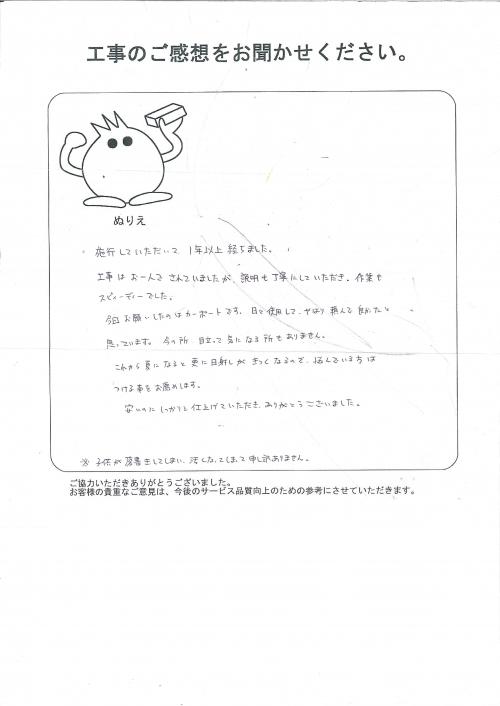 工事のご感想をお聞かせください。
ぬりえ
施行していただいて、1年以上経ちました。
工事はお一人でされていましたが、説明も丁寧にしていただき、作業も
スピーディーでした。
今回お願いしたのはカーポートです。日々使用して、やはり頼んで良かったと
思っています。今の所、目立って気になる所もありません。
これから夏になると更に日射しがきつくなるので、悩んでいる方は
つける事をお薦めします。
安いのにしっかりと仕上げていただき、ありがとうございました。
※子供が落書きしてしまい、汚くなってしまって申し訳ありません。
ご協力いただきありがとうございました。
お客様の貴重なご意見は、今後のサービス品質向上のための参考にさせていただきます。